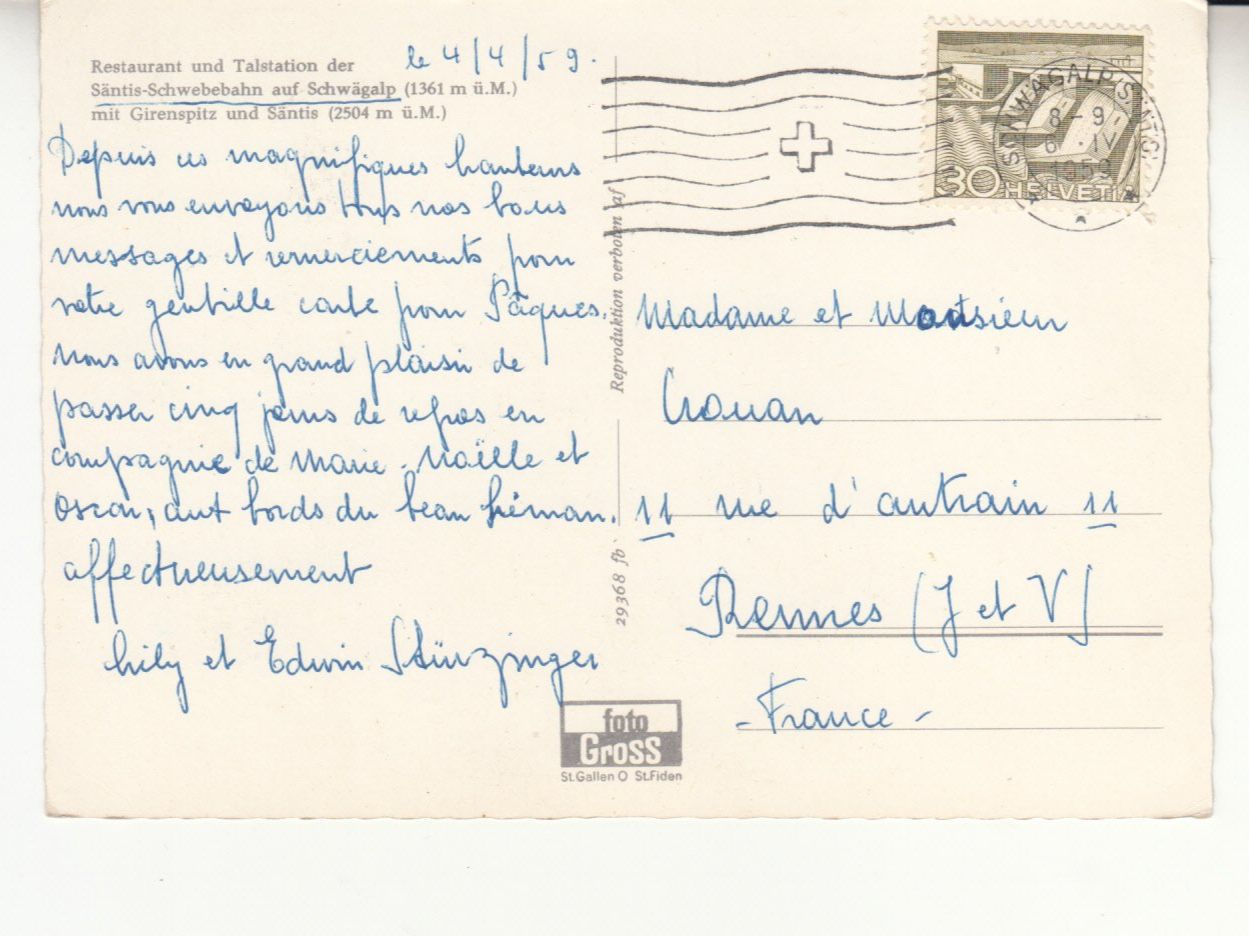 le 4/4/59.
Restaurant und Talstation der
Säntis-Schwebebahn auf Schwägalp (1361 m ü.M.)
mit Girenspitz und Säntis (2504 m ü.M.)
Depuis ces magnifiques hauteurs
nous vous envoyons tous nos bons
messages et remerciements pour
votre gentille carte pour Pâques.
Nous avons eu grand plaisir de
passer cinq jours de repos en
compagnie de Marie-Noëlle et
Oscar, aut bords du beau Léman.
affectueusement
Lily et Edwin Stürzinger
Reproduktion verboten
29368 fb
foto
Gross
St.Gallen O St.Fiden
SCHWÄGALP (SÄNTIS)
8-9
6. IV
1959
30 HELVETIA
Madame et Monsieur
Crouan
11 rue d'autrain 11
Rennes (J et V)
- France -